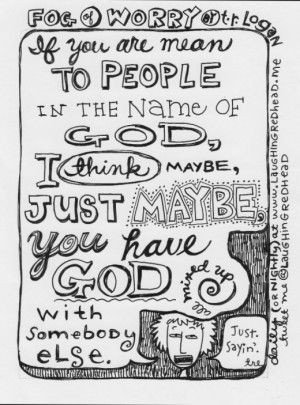 FOG of WORRY BY t.r. Logan
If you are mean
TO PEOPLE
IN THE Name OF
GOD,
I think MAYBE,
JUST MAYBE,
you have
GOD
all mixed up
with
Somebody
eLSe.
Just.
Sayin'.
tre
daily (OR NIGHTLY) at www.LAUGHiNGReDHeaD.me
tweet me @LAUGHiNGReDHeaD